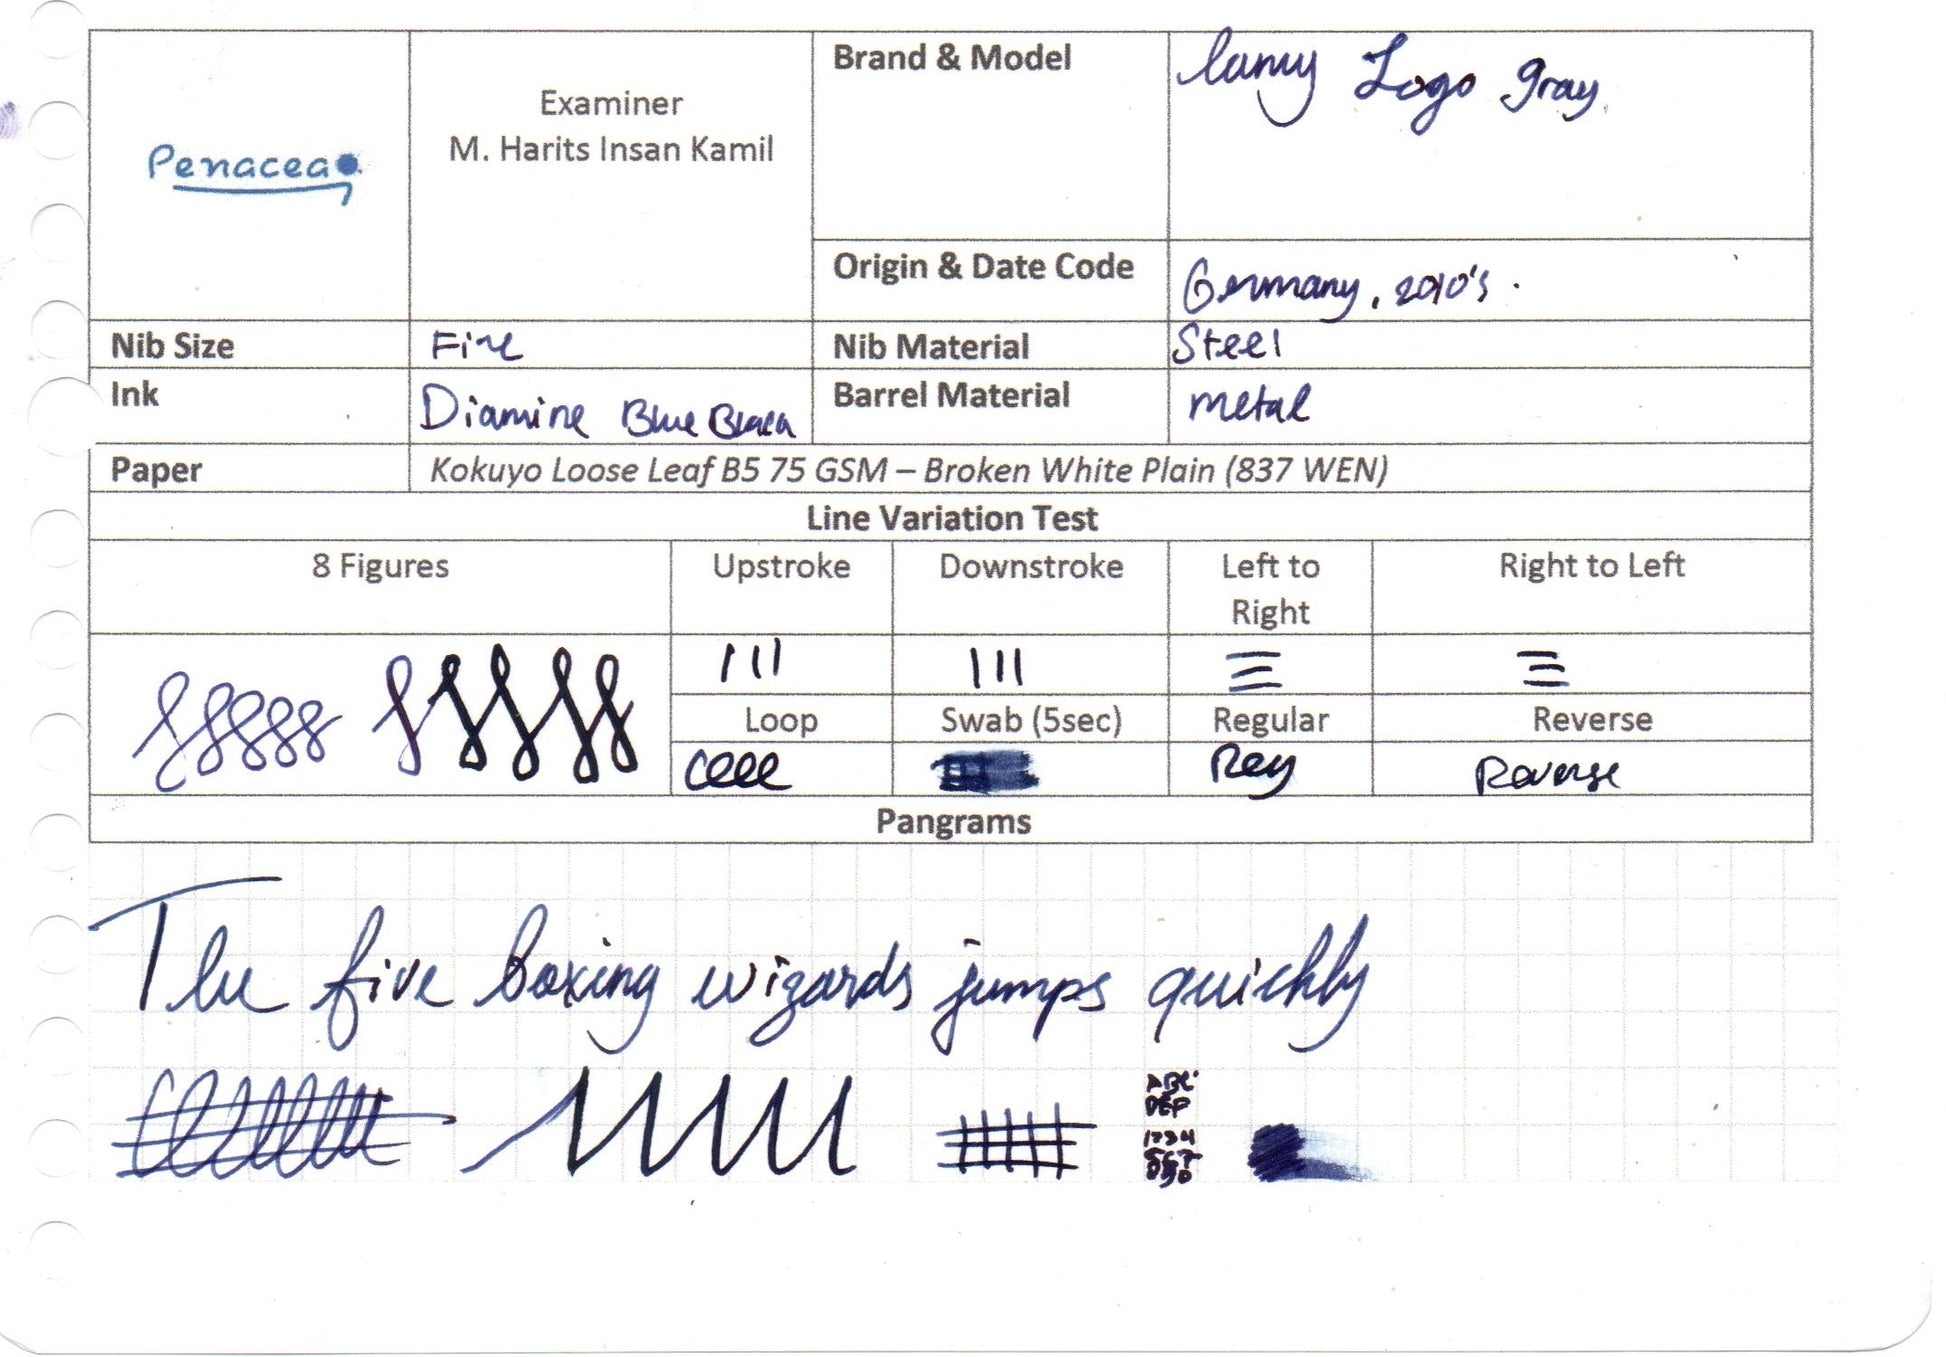 Penacea
Examiner
M. Harits Insan Kamil
Brand & Model
Lamy Logo gray
Origin & Date Code
Germany, 2010's.
Nib Size
Fine
Nib Material
Steel
Ink
Diamine Blue Black
Barrel Material
metal
Paper
Kokuyo Loose Leaf B5 75 GSM – Broken White Plain (837 WEN)
Line Variation Test
8 Figures
Upstroke
Downstroke
Left to
Right
Right to Left
Loop
Swab (5sec)
Regular
Reverse
Reg
Reverse
Pangrams
The five boxing wizards jumps quickly
ABC
DEF
1234
567
890